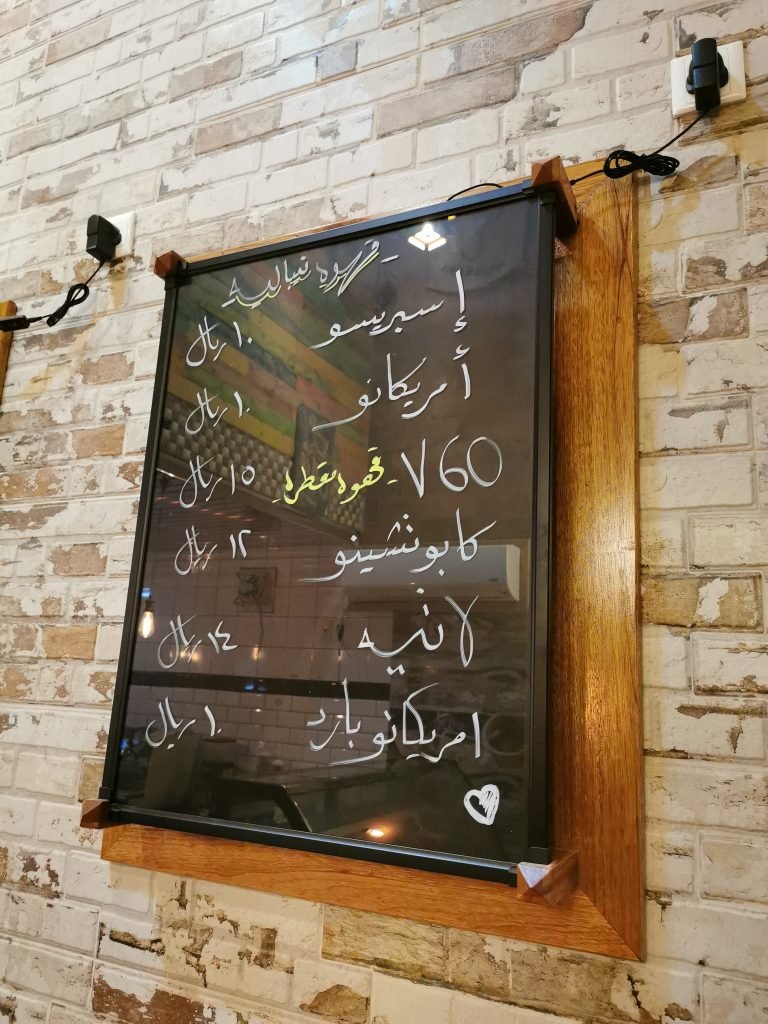 - قهوه نيباليه -
إسبريسو ١٠ ريال
أمريكانو ١٠ ريال
V60 - قهوه مقطره - ١٥ ريال
كابوتشينو ١٢ ريال
لاتيه ١٤ ريال
امريكانو بازد ١٠ ريال